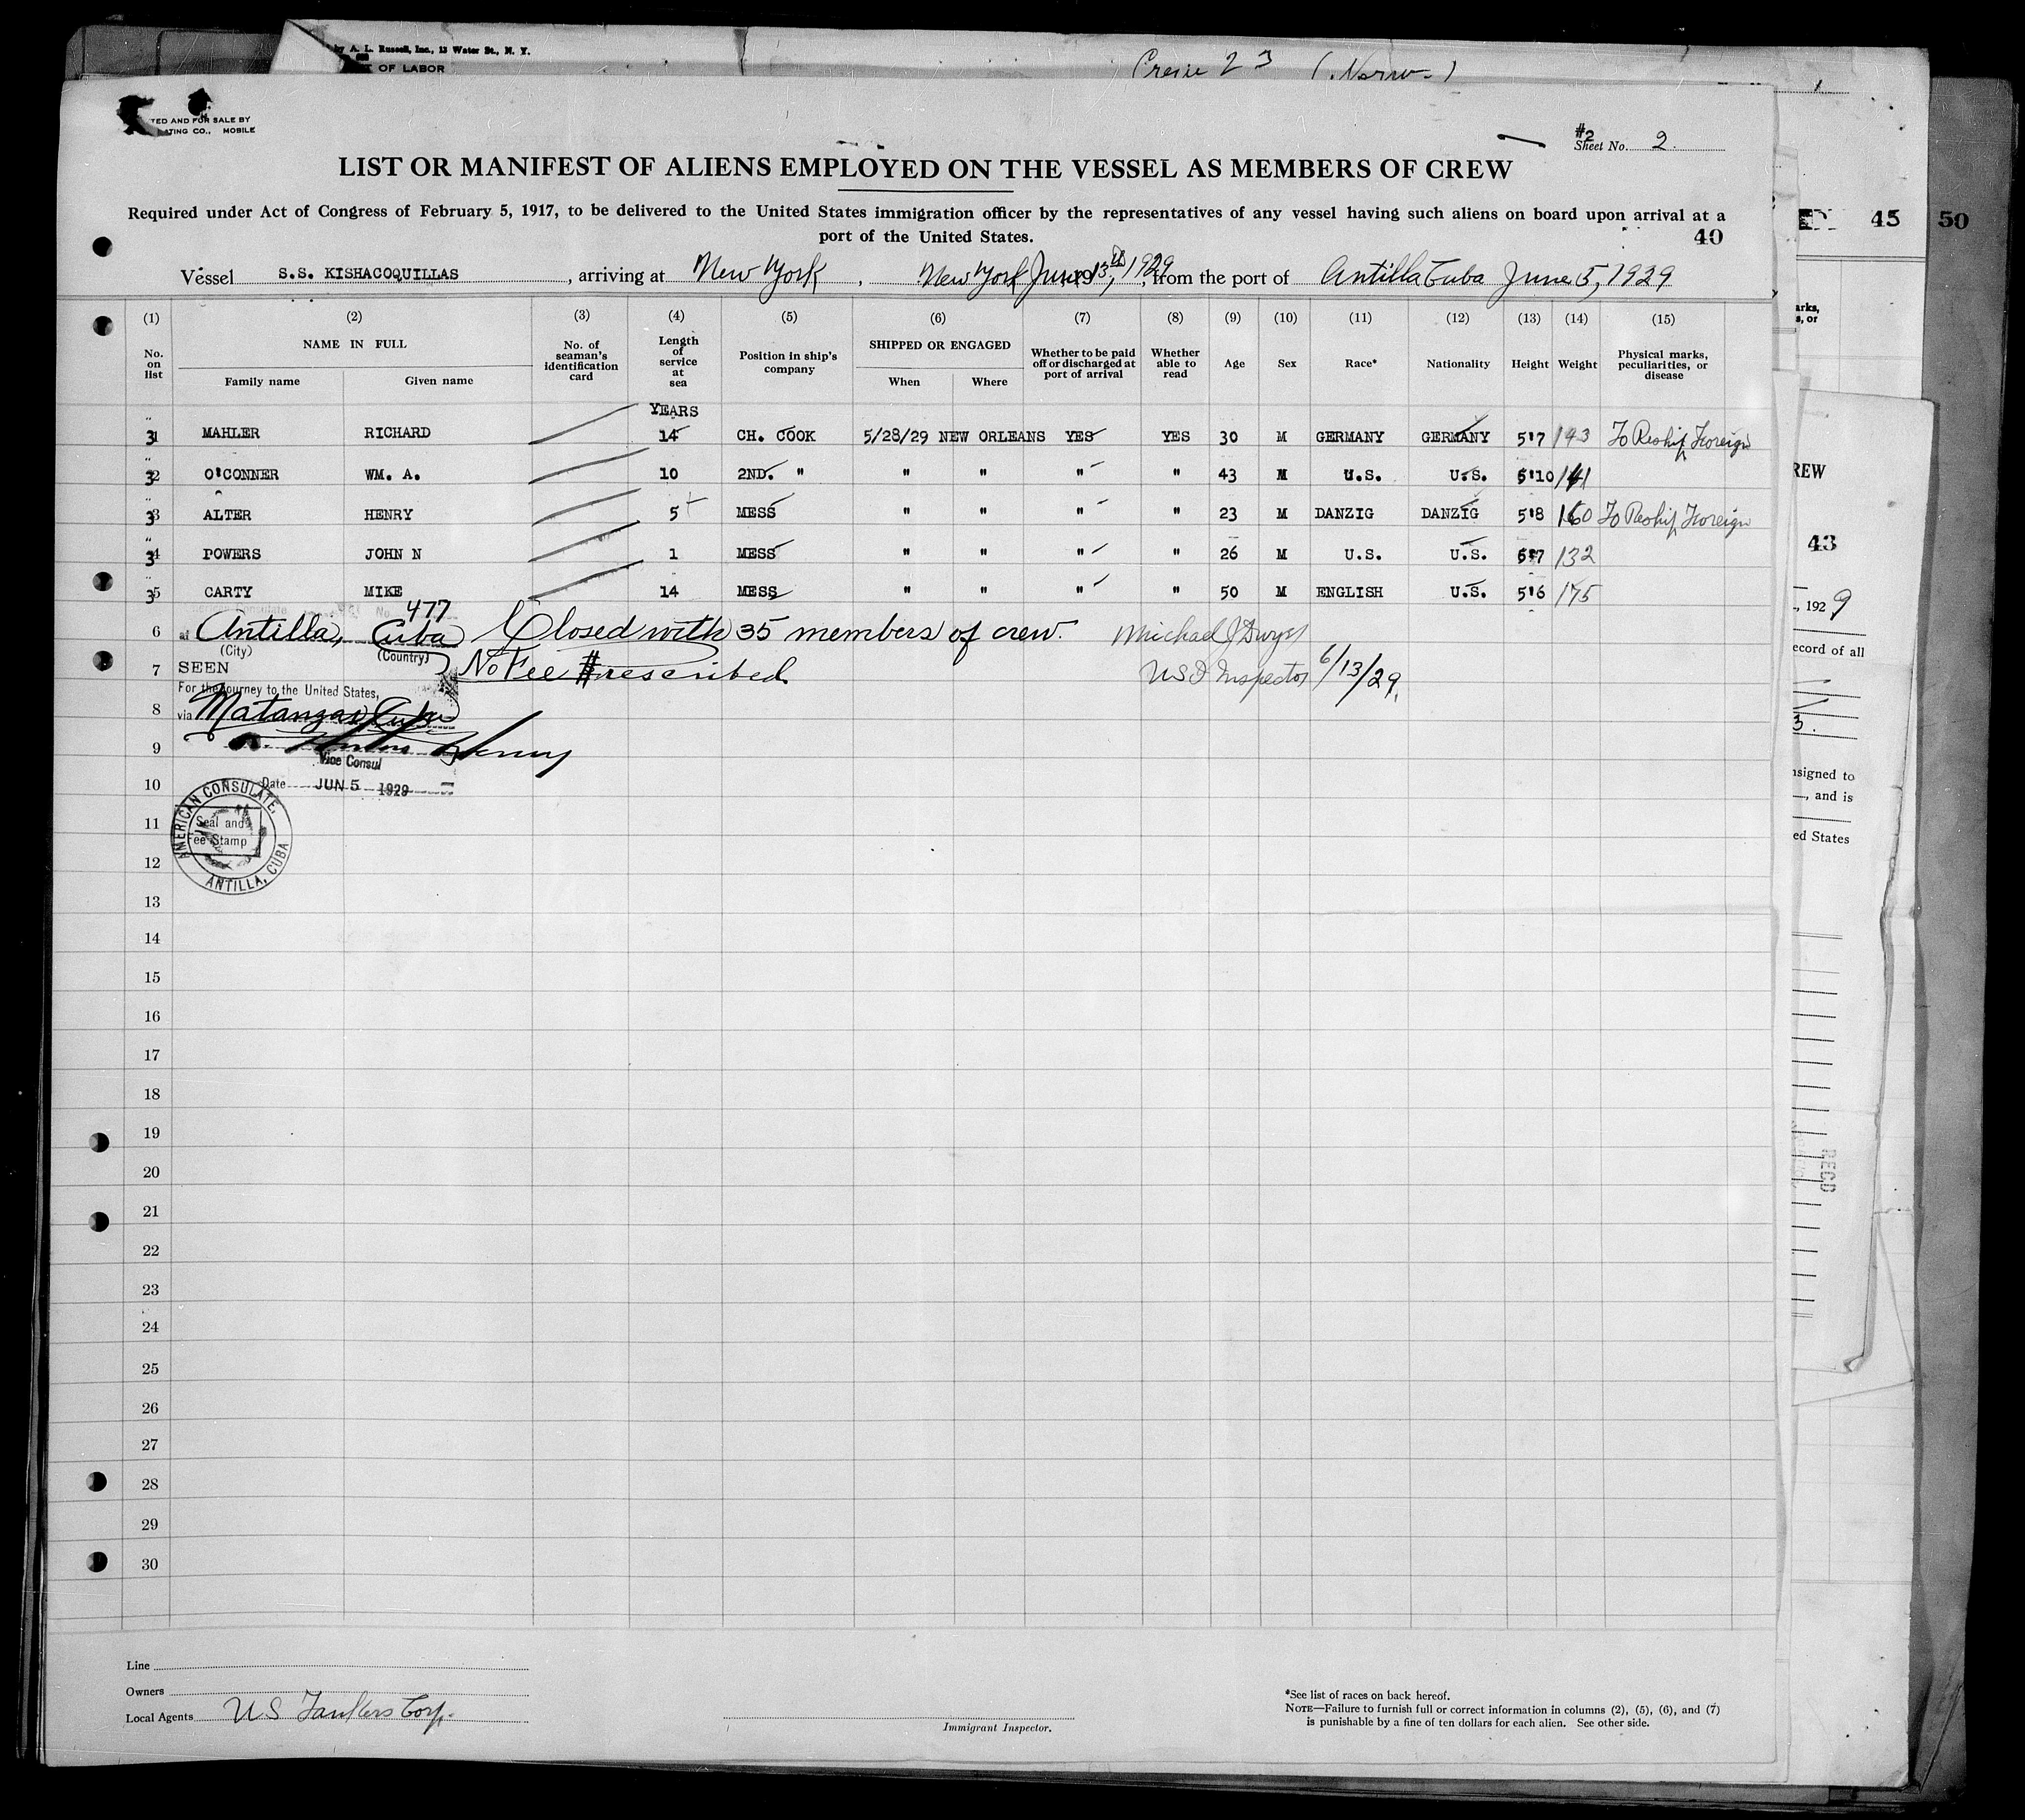 by A. L. Russell, Inc., 13 Water St., N. Y.
OF LABOR
TED AND FOR SALE BY
ATING CO., MOBILE
#2
Sheet No. 2.
LIST OR MANIFEST OF ALIENS EMPLOYED ON THE VESSEL AS MEMBERS OF CREW
Required under Act of Congress of February 5, 1917, to be delivered to the United States immigration officer by the representatives of any vessel having such aliens on board upon arrival at a
port of the United States.
40
45
50
Vessel S.S. KISHACOQUILLAS, arriving at New York, New York June 13th, 1929, from the port of Antilla Cuba June 5, 1929
(1) (2) (3) (4) (5) (6) (7) (8) (9) (10) (11) (12) (13) (14) (15)
No. on list NAME IN FULL Family name Given name No. of seaman's identification card Length of service at sea Position in ship's company SHIPPED OR ENGAGED When Where Whether to be paid off or discharged at port of arrival Whether able to read Age Sex Race* Nationality Height Weight Physical marks, peculiarities, or disease
YEARS
31 MAHLER RICHARD 14 CH. COOK 5/28/29 NEW ORLEANS YES YES 30 M GERMANY GERMANY 5'7 143 To Reship Foreign
32 O'CONNER WM. A. 10 2ND. " " " " " 43 M U.S. U.S. 5'10 141
33 ALTER HENRY 5 MESS " " " " 23 M DANZIG DANZIG 5'8 160 To Reship Foreign
34 POWERS JOHN N 1 MESS " " " " 26 M U.S. U.S. 5'7 132
35 CARTY MIKE 14 MESS " " " " 50 M ENGLISH U.S. 5'6 175
No. 477
6 at Antilla, Cuba Closed with 35 members of crew. Michael J Dwyer
(City) (Country)
7 SEEN No Fee Prescribed. USI Inspector 6/13/29.
For the journey to the United States,
8 via Matanzas Cuba
9
Vice Consul
10 Date JUN 5 1929
AMERICAN CONSULATE, ANTILLA, CUBA
Seal and
Fee Stamp
11
12
13
14
15
16
17
18
19
20
21
22
23
24
25
26
27
28
29
30
Line
Owners
Local Agents U S Tankers Corp.
Immigrant Inspector.
*See list of races on back hereof.
NOTE—Failure to furnish full or correct information in columns (2), (5), (6), and (7)
is punishable by a fine of ten dollars for each alien. See other side.
REW
43
, 192 9
ecord of all
3.
signed to
—, and is
ed States
RECD